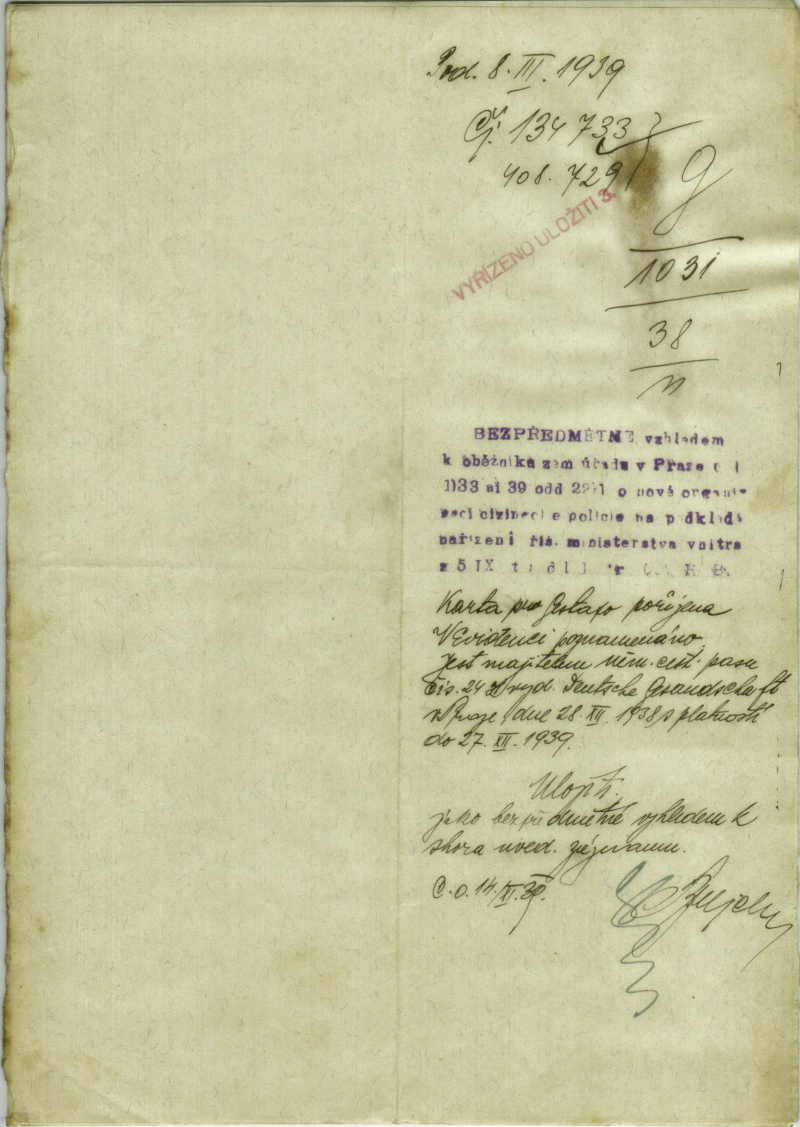 Pod. 8. III. 1939
Čj. 134 733
408. 729
g
VYŘÍZENO ULOŽITI 3.
1031
38
n
BEZPŘEDMĚTNÉ vzhledem
k oběžníku zem úřadu v Praze
1133 ai 39 odd 29 o nové organi-
zaci cizinecké policie na podkladě
nařízení říš. ministerstva vnitra
z 5 IX
Karta pro Gestapo pořízena
V Evidenci poznamenáno
Jest majitelem něm. cest. pasu
čís. 24 vyd. Deutsche Gesandschaft
v Praze, dne 28. XII. 1938, s platností
do 27. XII. 1939.
Uložit.
jako bezpředmětné vzhledem k
shora uved. záznamu.
Č.O. 14. XI. 39.